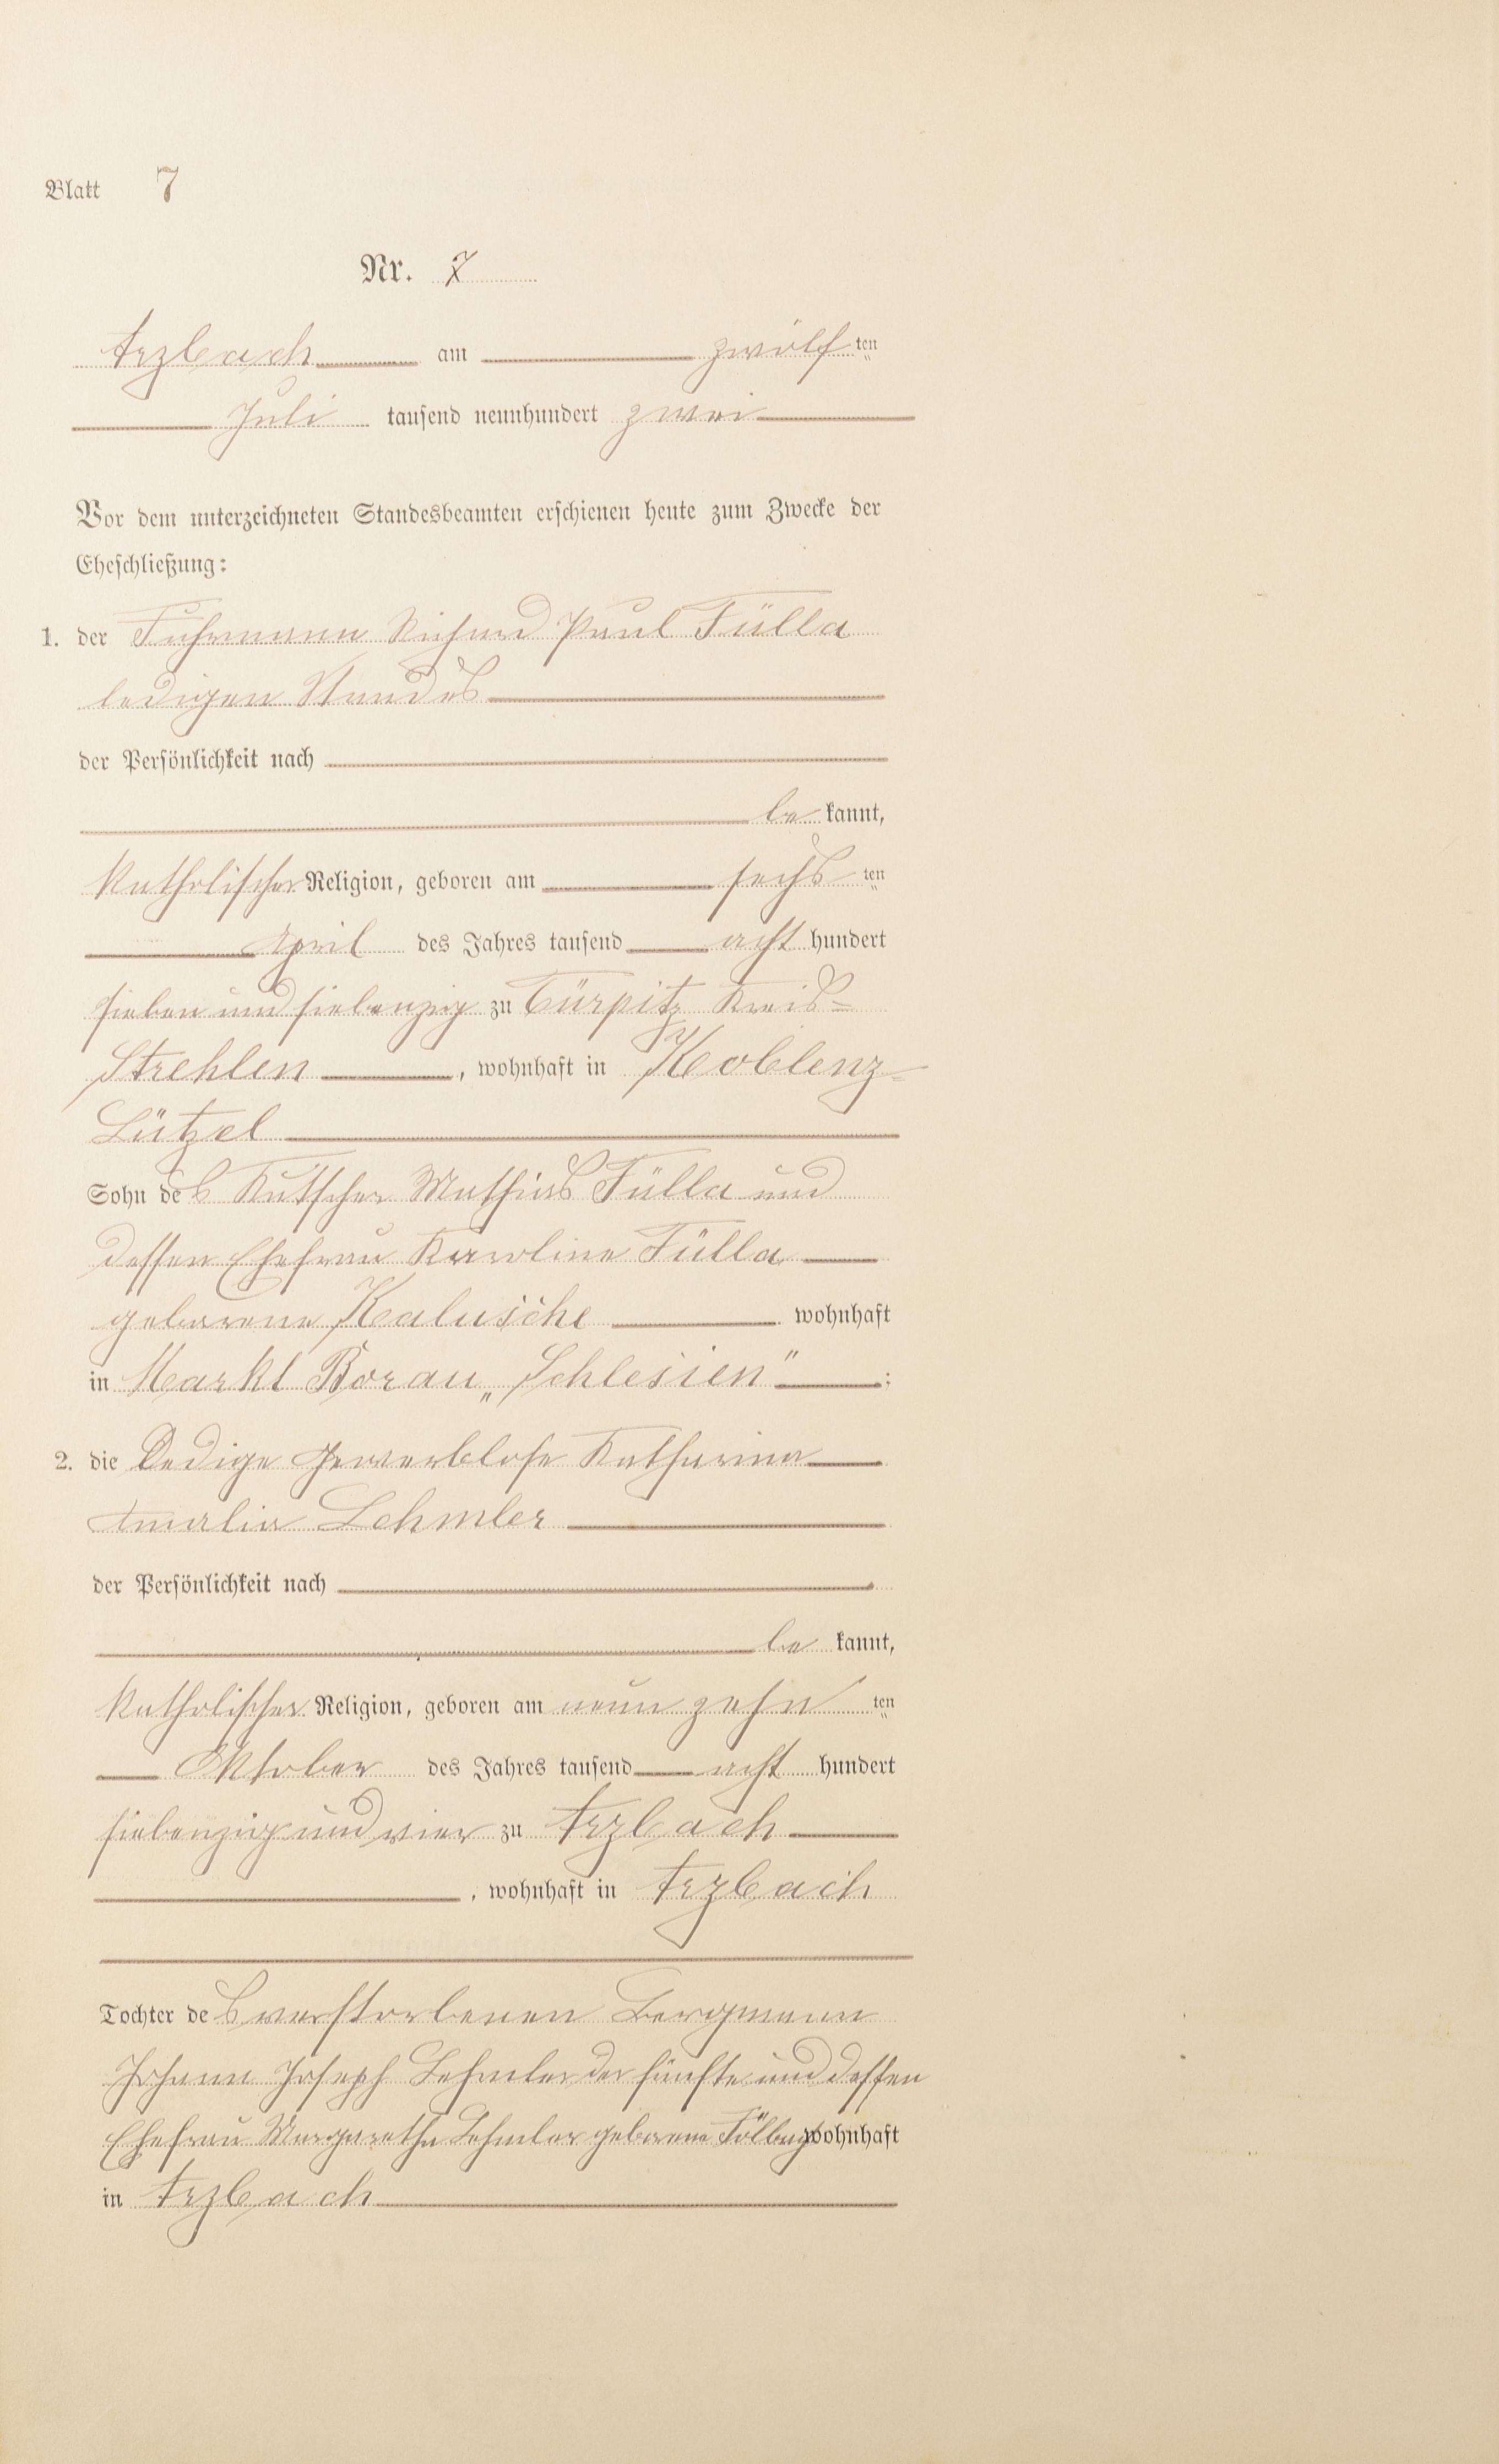 Blatt 7
Nr. 7
Arzbach am zwölften
Juli tausend neunhundert zwei
Vor dem unterzeichneten Standesbeamten erschienen heute zum Zwecke der
Eheschließung:
1. der Fuhrmann Richard Paul Fülla
ledigen Standes
der Persönlichkeit nach
be kannt,
katholischer Religion, geboren am sechsten
April des Jahres tausend acht hundert
sieben und siebenzig zu Türpitz Kreis-
Strehlen, wohnhaft in Koblenz-
Lützel
Sohn des Kutscher Mathias Fülla und
dessen Ehefrau Karoline Fülla
geborene Kalusche wohnhaft
in Markt Borau „Schlesien“;
2. die Ledige gewerblose Katharina
Amalia Lehmler
der Persönlichkeit nach
be kannt,
katholischer Religion, geboren am neun zehnten
Oktober des Jahres tausend acht hundert
siebenzig und vier zu Arzbach
, wohnhaft in Arzbach
Tochter des verstorbenen Bergmann
Johann Joseph Lehmler der fünfte und dessen
Ehefrau Margaretha Lehmler geborene wohnhaft
in Arzbach